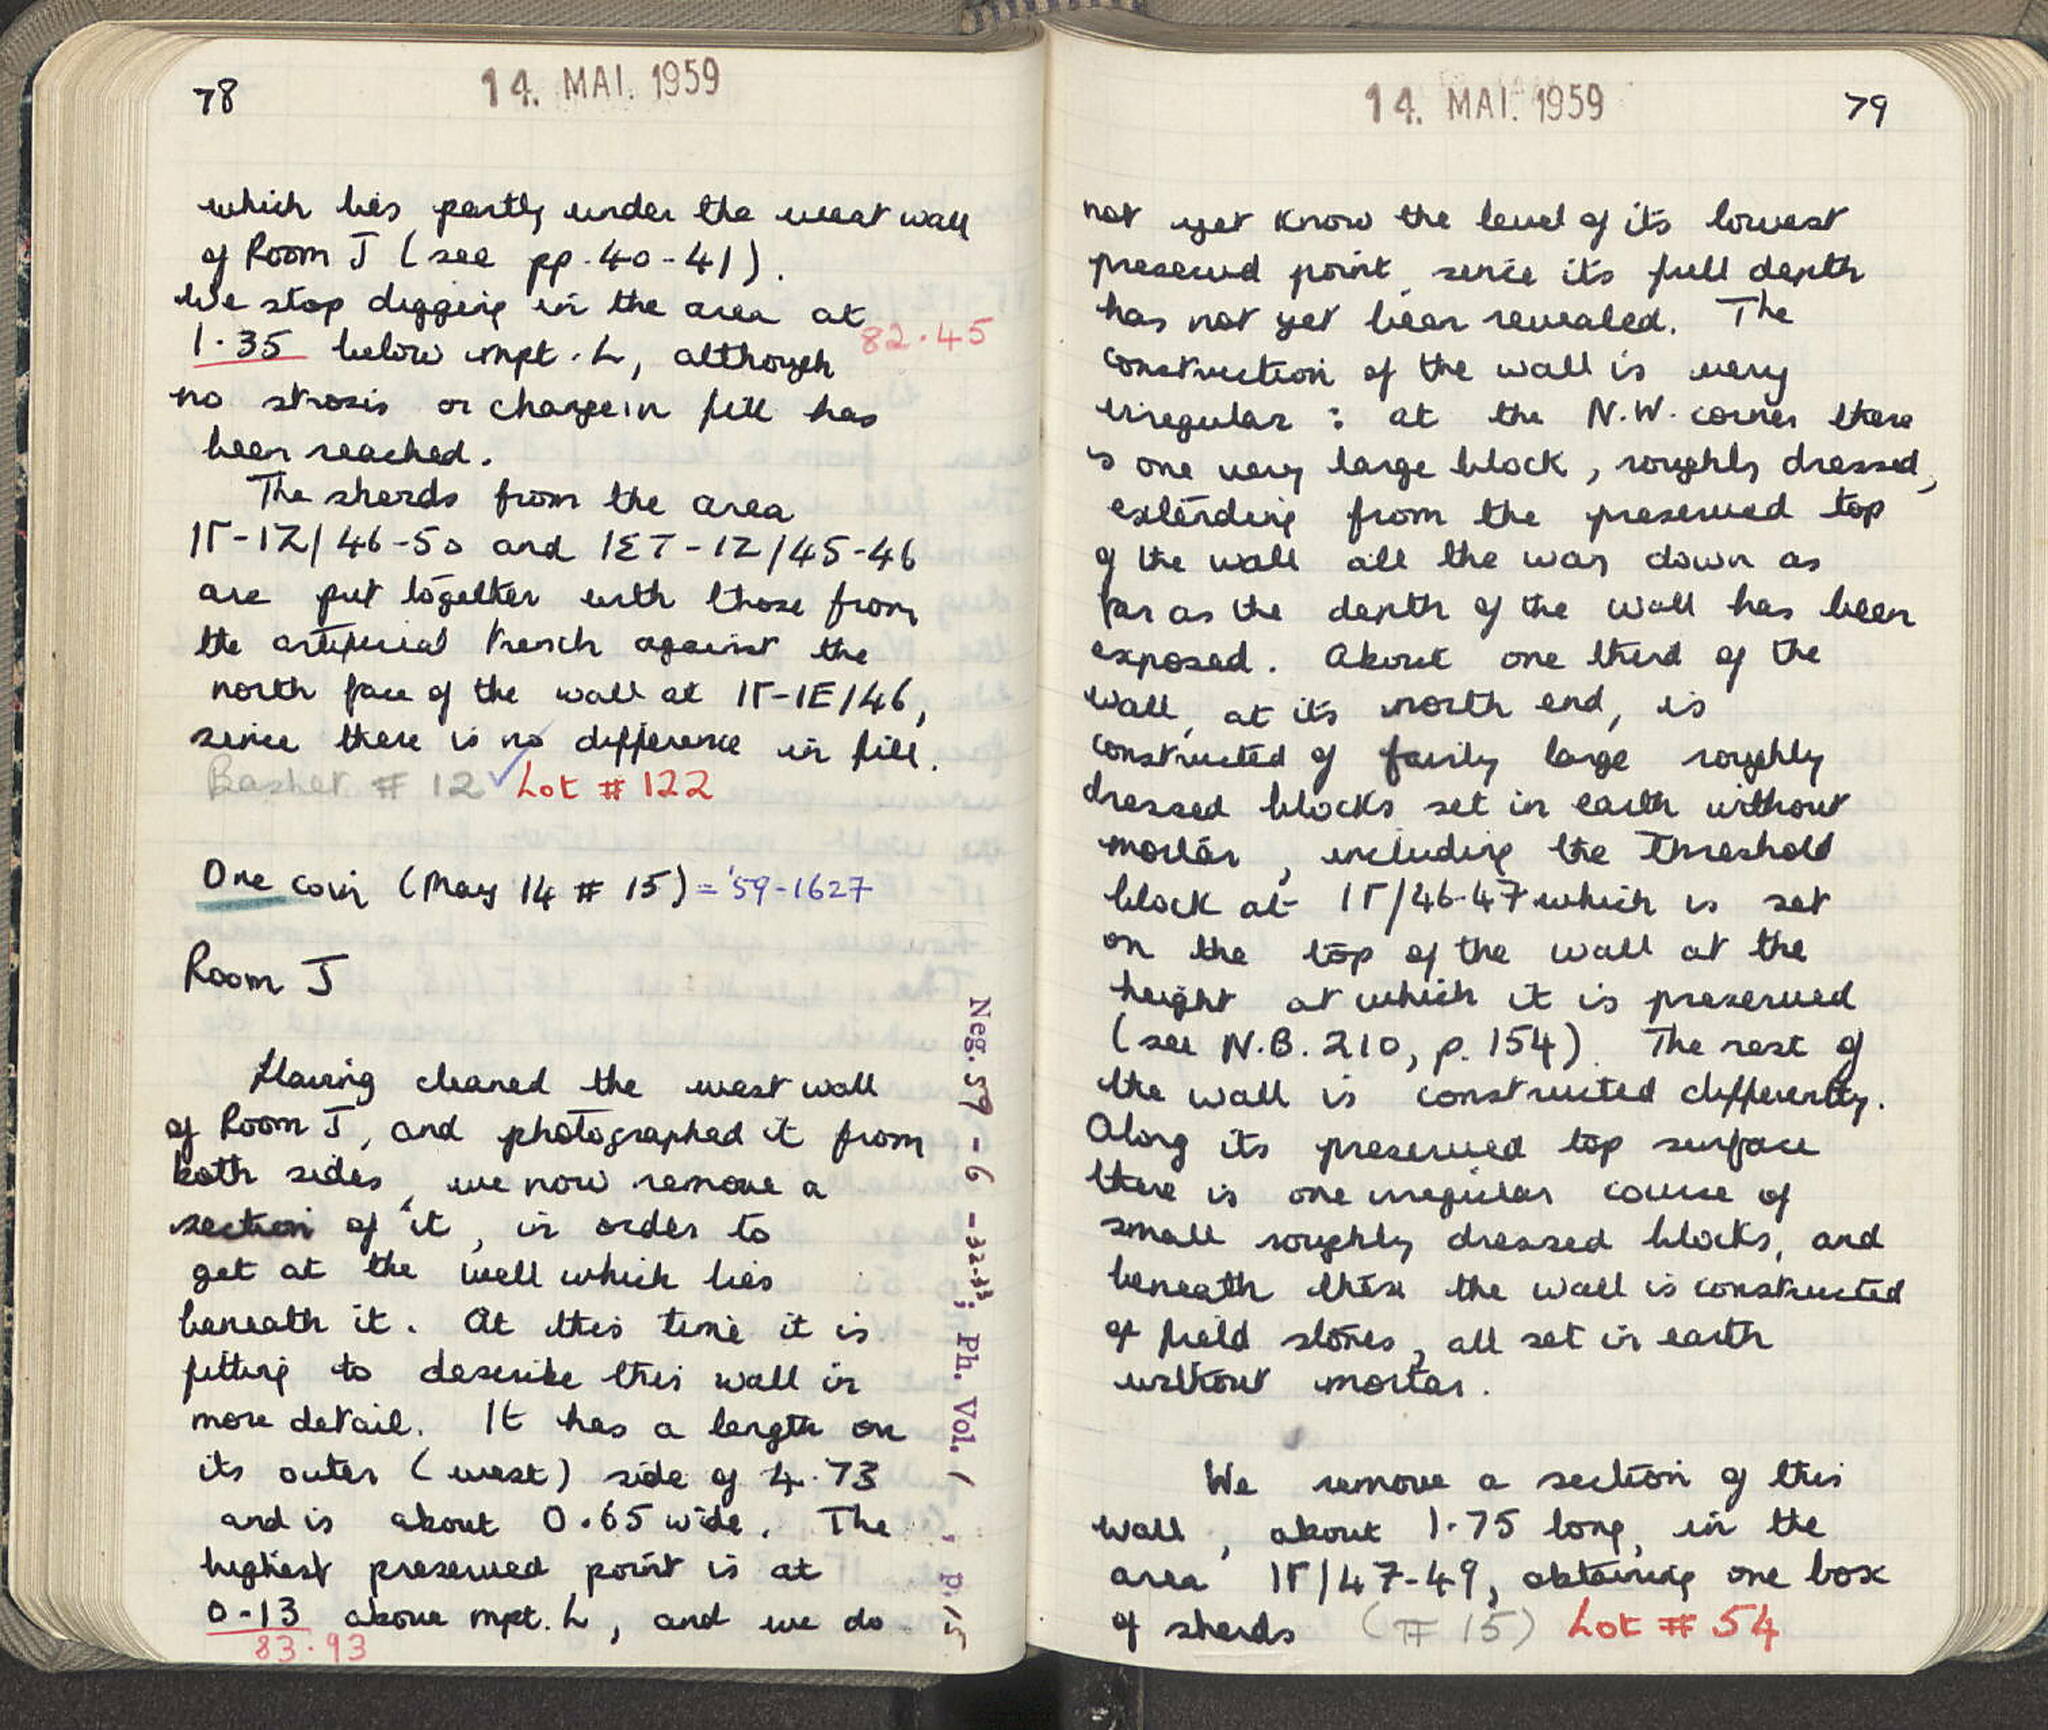 78
14. MAI. 1959
which lies partly under the west wall
of Room J (see pp. 40-41).
We stop digging in the area at
1.35 below mpt. L, although 82.45
no strosis or change in fill has
been reached.
The sherds from the area
ΙΓ-ΙΖ/46-50 and ΙΣΤ-ΙΖ/45-46
are put together with those from
the artificial trench against the
north face of the wall at ΙΓ-ΙΕ/46,
since there is no difference in fill.
Basket # 12 ✓ Lot # 122
One coin (May 14 # 15) = '59-1627
Room J
Having cleaned the west wall
of Room J, and photographed it from
both sides, we now remove a
section of it, in order to
get at the well which lies
beneath it. At this time it is
fitting to describe this wall in
more detail. It has a length on
its outer (west) side of 4.73
and is about 0.65 wide. The
highest preserved point is at
0-13 above mpt. L, and we do
83.93
Neg. 59-6-32-33; Ph. Vol. 1, p. 15
14. MAI. 1959
79
not yet know the level of its lowest
preserved point, since its full depth
has not yet been revealed. The
construction of the wall is very
irregular: at the N.W. corner there
is one very large block, roughly dressed,
extending from the preserved top
of the wall all the way down as
far as the depth of the wall has been
exposed. About one third of the
wall, at its north end, is
constructed of fairly large roughly
dressed blocks set in earth without
mortar, including the threshold
block at ΙΓ/46-47 which is set
on the top of the wall at the
height at which it is preserved
(see N.B. 210, p. 154). The rest of
the wall is constructed differently.
Along its preserved top surface
there is one irregular course of
small roughly dressed blocks, and
beneath these the wall is constructed
of field stones, all set in earth
without mortar.
We remove a section of this
wall, about 1.75 long, in the
area ΙΓ/47-49, obtaining one box
of sherds (# 15) Lot # 54